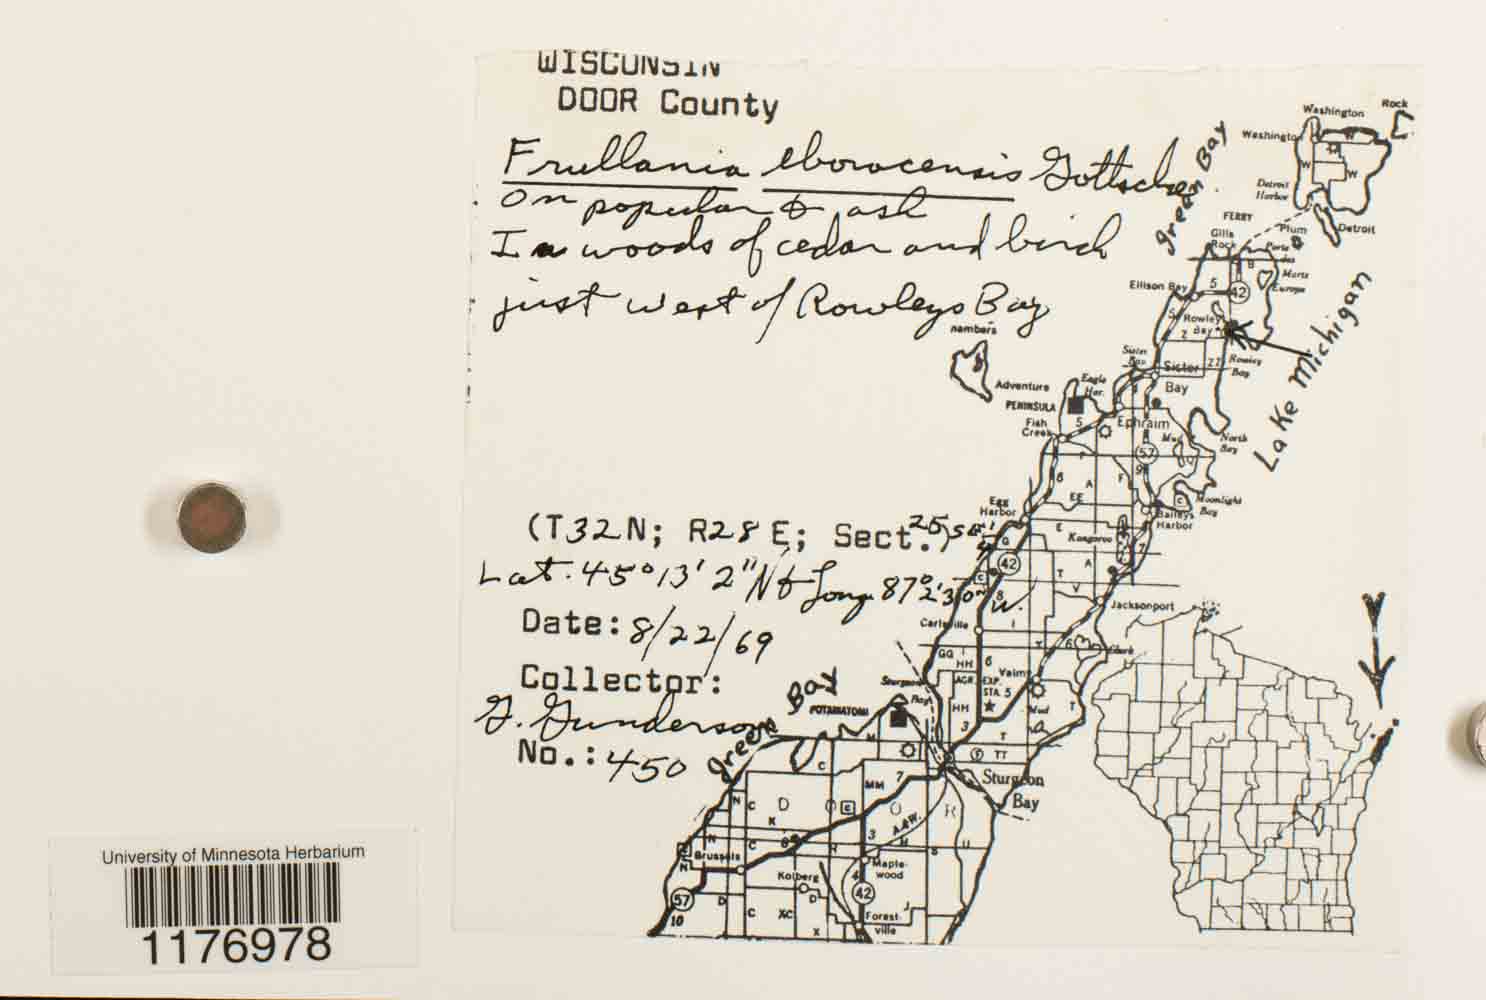 WISCONSIN
DOOR County
Frullania eboracensis Gottsche
on popular & ash
In woods of cedar and birch
just west of Rowleys Bay
(T32N; R28E; Sect. 25) SE 1/4
Lat. 45° 13' 2" N & Long 87° 2' 30" W.
Date: 8/22/69
Collector:
G. Gunderson
No.: 450
University of Minnesota Herbarium
1176978
Green Bay
Lake Michigan
Green Bay
Washington
Rock
Washingto
W
W
W
Detroit Harbor
FERRY
Plum
Detroit
Gills Rock
Porte des Morts
Ellison Bay
5
42
Europe
Rowley Bay
2
27
Rowley Bay
nambers
Sister Bay
Sister Bay
Adventure
Eagle Har.
PENINSULA
Fish Creek
5
Ephraim
Mud
North Bay
57
9
F
8
A
F
EE
C
Moonlight Bay
Egg Harbor
E
Baileys Harbor
Kangaroo
7
G
42
A
C
T
V
8
Jacksonport
Carlsville
I
6
Clark
GG
I
HH
6
Valmy
AGR. EXP. STA.
5
Sturgeon Bay
HH
3
Mud
T
POTAWATOMI
M
T
TT
C
7
MM
Sturgeon Bay
N
C
D
O
C
O
R
K
A.&W.
3
N
C
8
H
S
U
Brussels
N
Maplewood
Kolberg
4
57
D
D
42
10
C
XC
J
X
Forestville